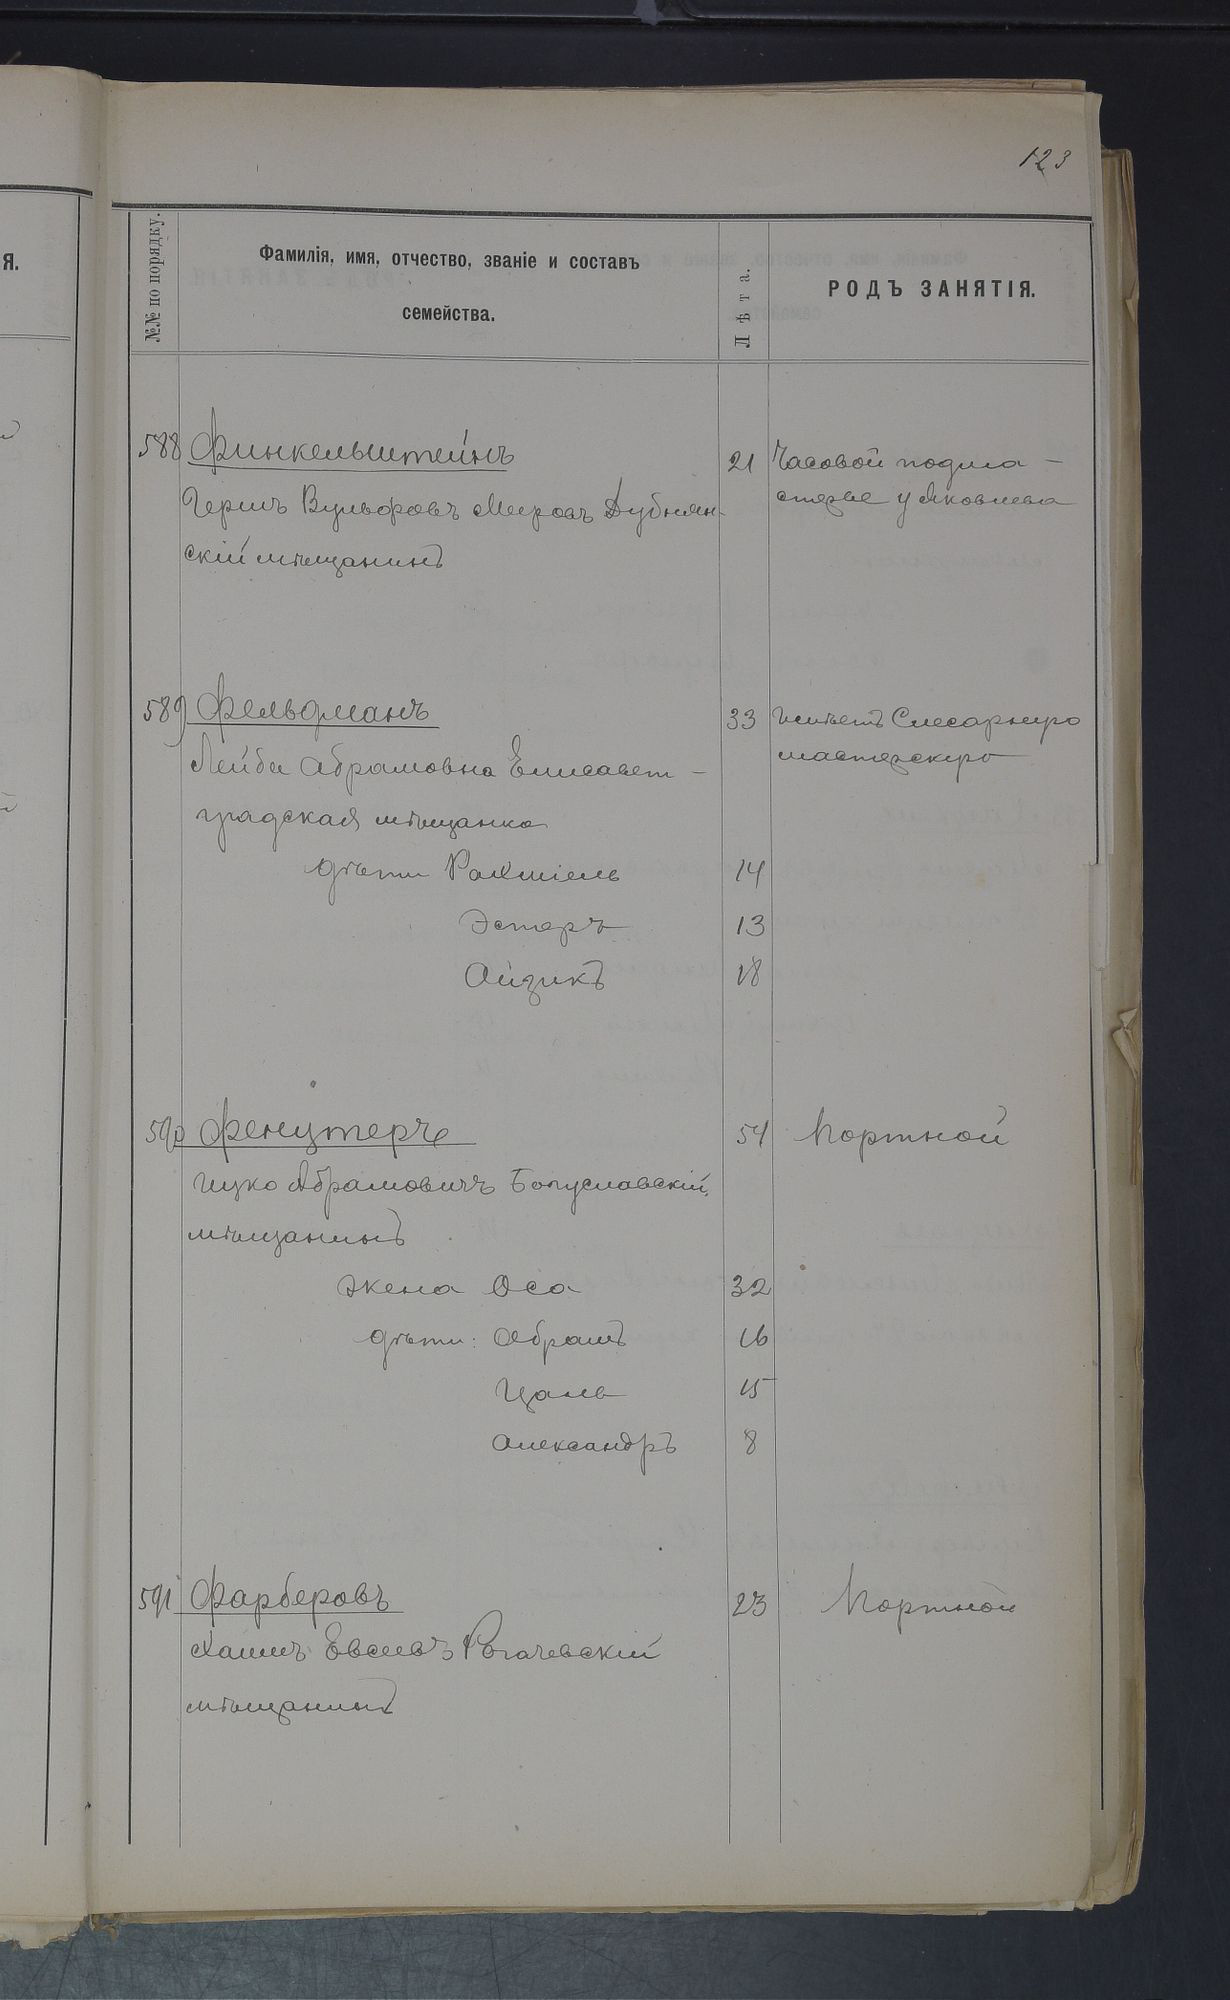 123
Я.
№№ по порядку.
Фамилія, имя, отчество, званіе и составъ
семейства.
Лѣта.
РОДЪ ЗАНЯТІЯ.
588 Финкельштейнъ 21 Часовой подма-
Гершъ Вульфовъ Мееровъ Дубнян- стерье у Яковлева
скій мѣщанинъ
589 Фельдманъ 33 Имѣетъ Слесарную
Лейба Абрамовна Елисавет- мастерскую
градская мѣщанка
дѣти Рахміель 14
Эстеръ 13
Айзикъ 18
590 54 Портной
Ицко Абрамовичъ Богуславскій
мѣщанинъ
жена Оса 32
дѣти: Абрамъ 16
15
Александръ 8
591 Фарберовъ 23 Портной
Хаимъ Евсеевъ Рогачевскій
мѣщанинъ